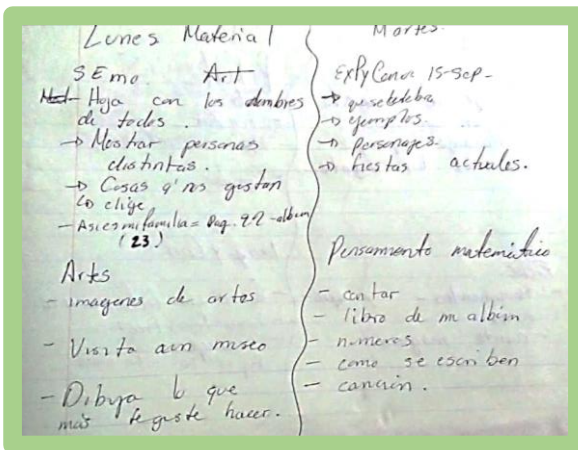 Lunes Material
SEmo. Art
Hoja con los nombres
de todos.
→ Mostrar personas
distintas.
→ Cosas q' nos gustan
↳ elige
- Asi es mi familia = Pag. 22 - album
(23)
Artes
- imagenes de artes
- Visita a un museo
- Dibuja lo que
más te guste hacer.
Martes.
ExPyConoc 15-Sep-
→ que se celebra
→ ejemplos
→ personajes.
→ fiestas actuales.
Pensamiento matemático
- contar
- libro de mi album
- numeros
- como se escriben
- canción.